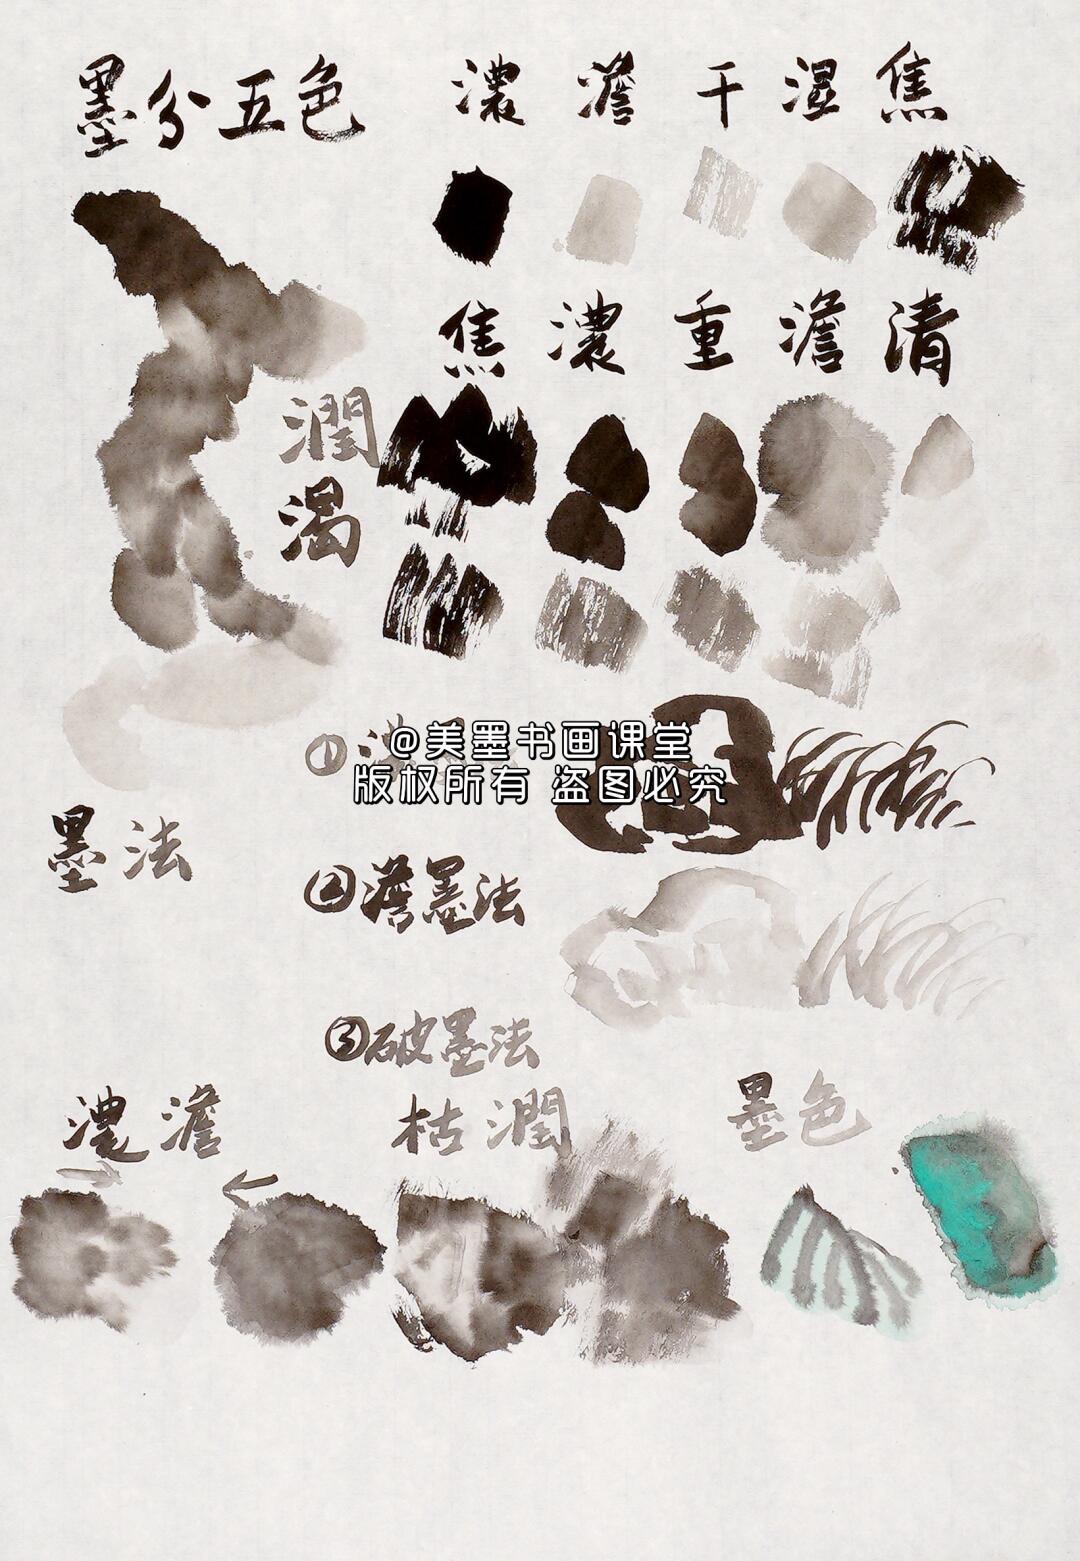 墨分五色
濃 澹 干 濕 焦
焦 濃 重 澹 清
潤
渴
①濃墨
@美墨书画课堂
版权所有 盗图必究
墨法
②澹墨法
③破墨法
濃 澹
枯 潤
墨色